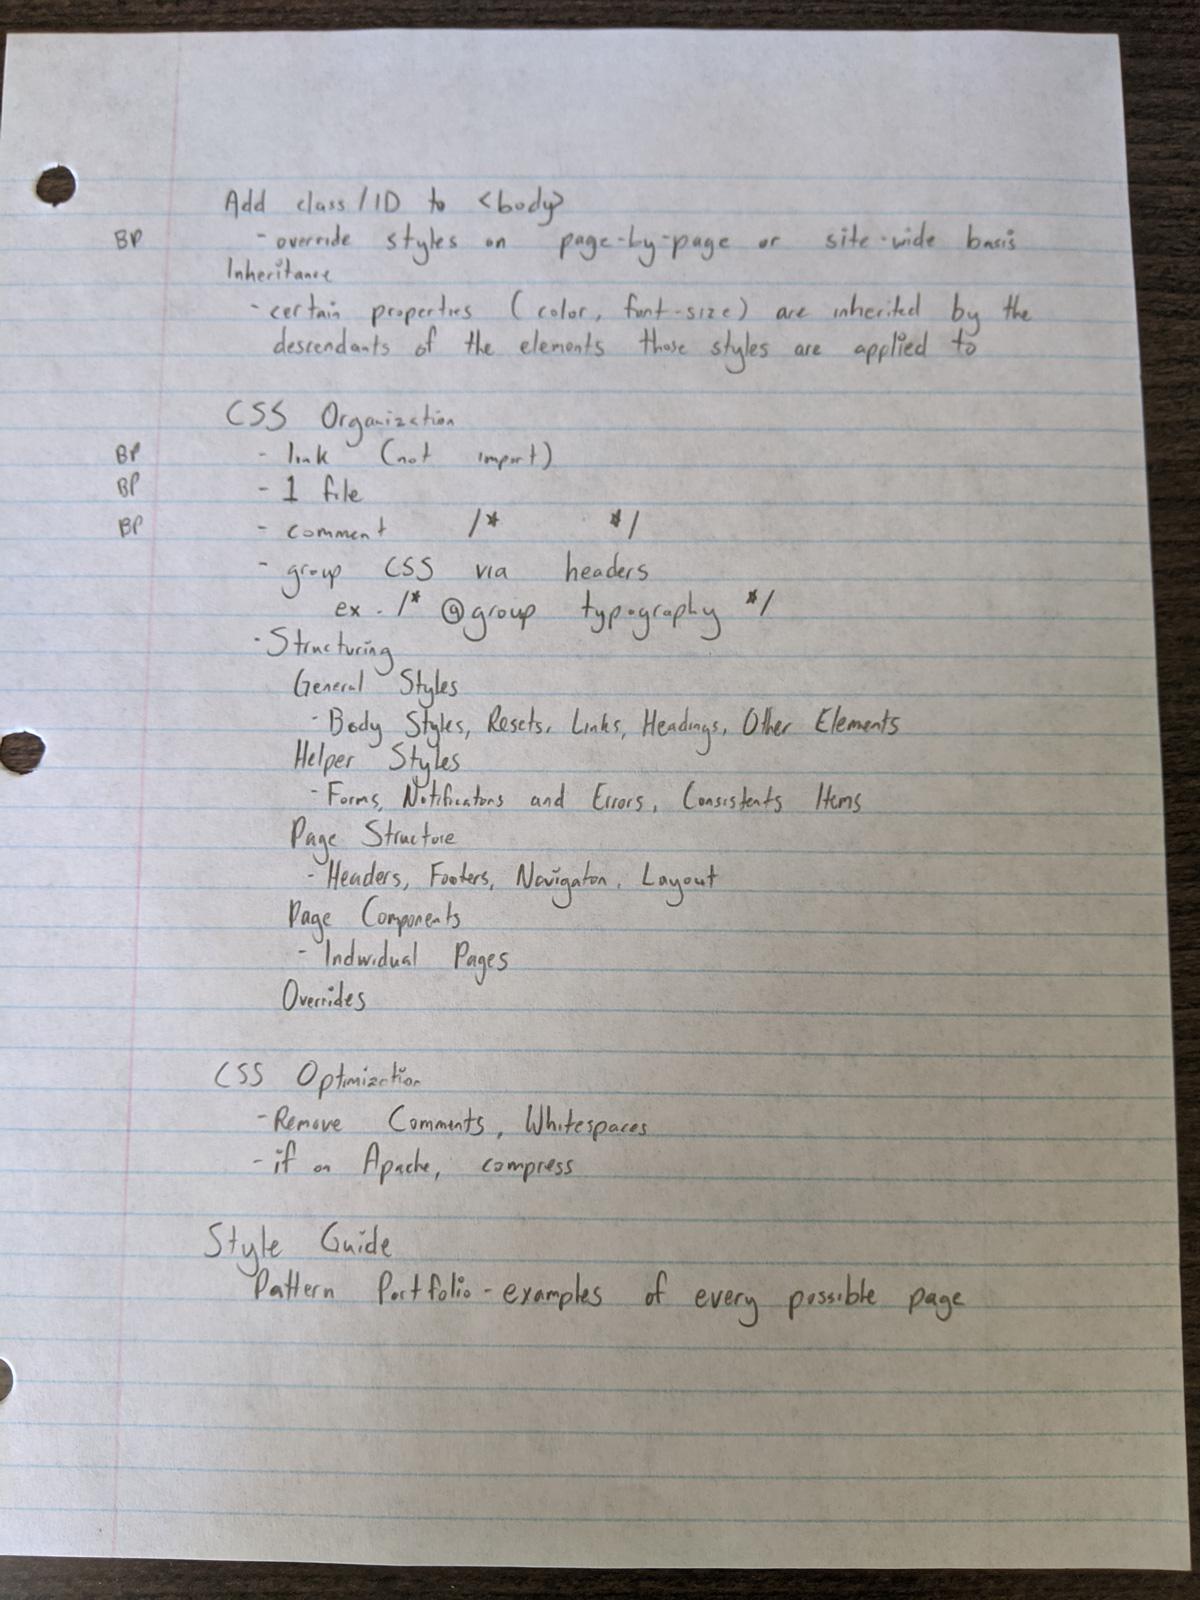 Add class/ID to <body>
BP - override styles on page-by-page or site-wide basis
Inheritance
- certain properties (color, font-size) are inherited by the
descendants of the elements those styles are applied to
CSS Organization
BP - link (not import)
BP - 1 file
BP - comment /* */
- group CSS via headers
ex. /* @group typography */
- Structuring
General Styles
- Body Styles, Resets, Links, Headings, Other Elements
Helper Styles
- Forms, Notifications and Errors, Consistents Items
Page Structure
- Headers, Footers, Navigaton, Layout
Page Components
- Individual Pages
Overrides
CSS Optimization
- Remove Comments, Whitespaces
- if on Apache, compress
Style Guide
Pattern Portfolio - examples of every possible page